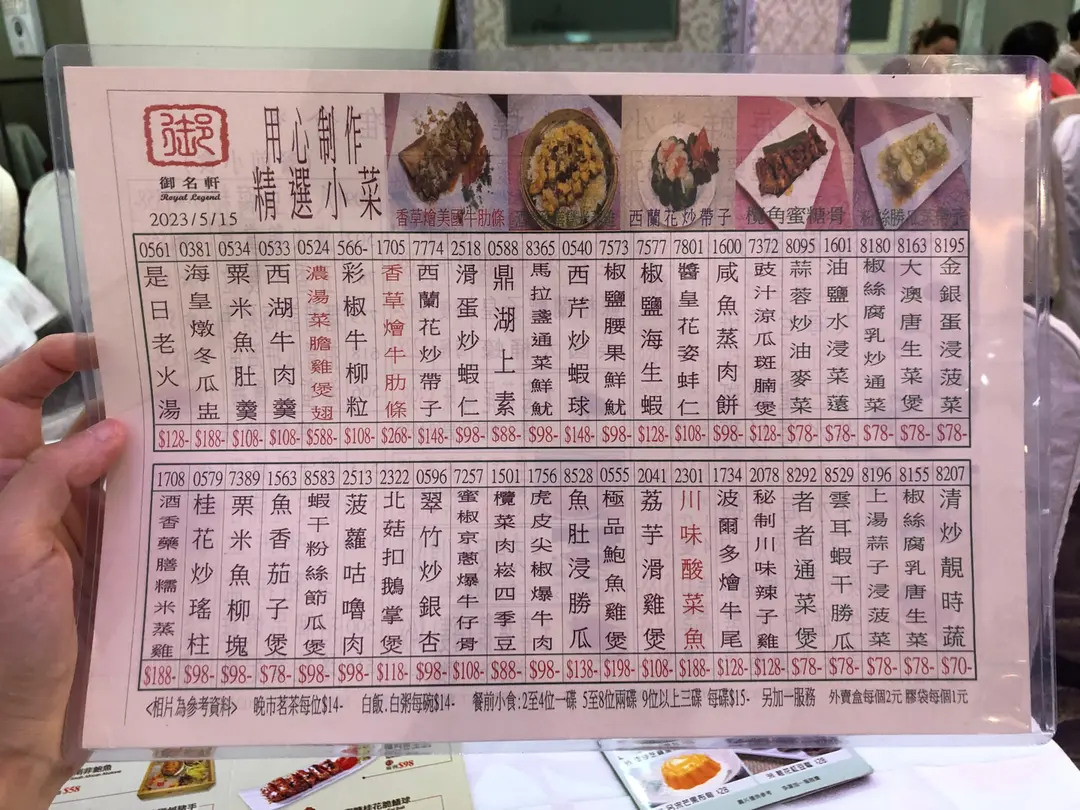 御
用心制作
精選小菜
御名軒
Royal Legend
2023/5/15
香草燴美國牛肋條
西蘭花炒帶子
角蜜糖骨
0561 0381 0534 0533 0524 566- 1705 7774 2518 0588 8365 0540 7573 7577 7801 1600 7372 8095 1601 8180 8163 8195
是日老火湯
海皇燉冬瓜盅
粟米魚肚羹
西湖牛肉羹
濃湯菜膽雞煲翅
彩椒牛柳粒
香草燴牛肋條
西蘭花炒帶子
滑蛋炒蝦仁
鼎湖上素
馬拉盞通菜鮮魷
西芹炒蝦球
椒鹽腰果鮮魷
椒鹽海生蝦
醬皇花姿蚌仁
咸魚蒸肉餅
豉汁涼瓜斑腩煲
蒜蓉炒油麥菜
油鹽水浸菜薳
椒絲腐乳炒通菜
大澳唐生菜煲
金銀蛋浸菠菜
$128- $188- $108- $108- $588- $108- $268- $148- $98- $88- $98- $148- $98- $128- $108- $98- $128- $78- $78- $78- $78- $78-
1708 0579 7389 1563 8583 2513 2322 0596 7257 1501 1756 8528 0555 2041 2301 1734 2078 8292 8529 8196 8155 8207
酒香藥膳糯米蒸雞
桂花炒瑤柱
粟米魚柳塊
魚香茄子煲
蝦干粉絲節瓜煲
菠蘿咕嚕肉
北菇扣鵝掌煲
翠竹炒銀杏
蜜椒京蔥爆牛仔骨
欖菜肉崧四季豆
虎皮尖椒爆牛肉
魚肚浸勝瓜
極品鮑魚雞煲
荔芋滑雞煲
川味酸菜魚
波爾多燴牛尾
秘制川味辣子雞
者者通菜煲
雲耳蝦干勝瓜
上湯蒜子浸菠菜
椒絲腐乳唐生菜
清炒靚時蔬
$188- $98- $98- $78- $98- $98- $118- $98- $108- $88- $98- $138- $198- $108- $188- $128- $128- $78- $78- $78- $78- $70-
<相片為參考資料> 晚市茗茶每位$14- 白飯.白粥每碗$14- 餐前小食:2至4位一碟 5至8位兩碟 9位以上三碟 每碟$15- 另加一服務 外賣盒每個2元 膠袋每個1元
$58
$98